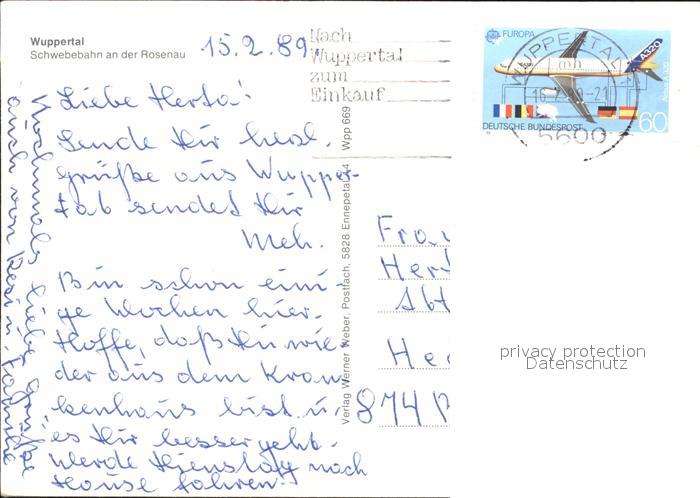 Wuppertal
Schwebebahn an der Rosenau
15.2.89
Nach
Wuppertal
zum
Einkauf
EUROPA
A320
DEUTSCHE BUNDESPOST
60
WUPPERTAL
5600
Liebe Herta!
Sende Dir herzl.
Grüße aus Wupper-
tal sendet Dir
Meh.
Bin schon eini-
ge Wochen hier.
Hoffe, daß Du wie-
der aus dem Kran-
kenhaus bist u.
es Dir besser geht.
Werde Dienstag nach
Hause fahren.
Nochmals liebe Grüße
auch von Resi u. Familie
Verlag Werner Weber, Postfach, 5828 Ennepetal 14 Wpp 669
Frau
Her
He
874
privacy protection
Datenschutz